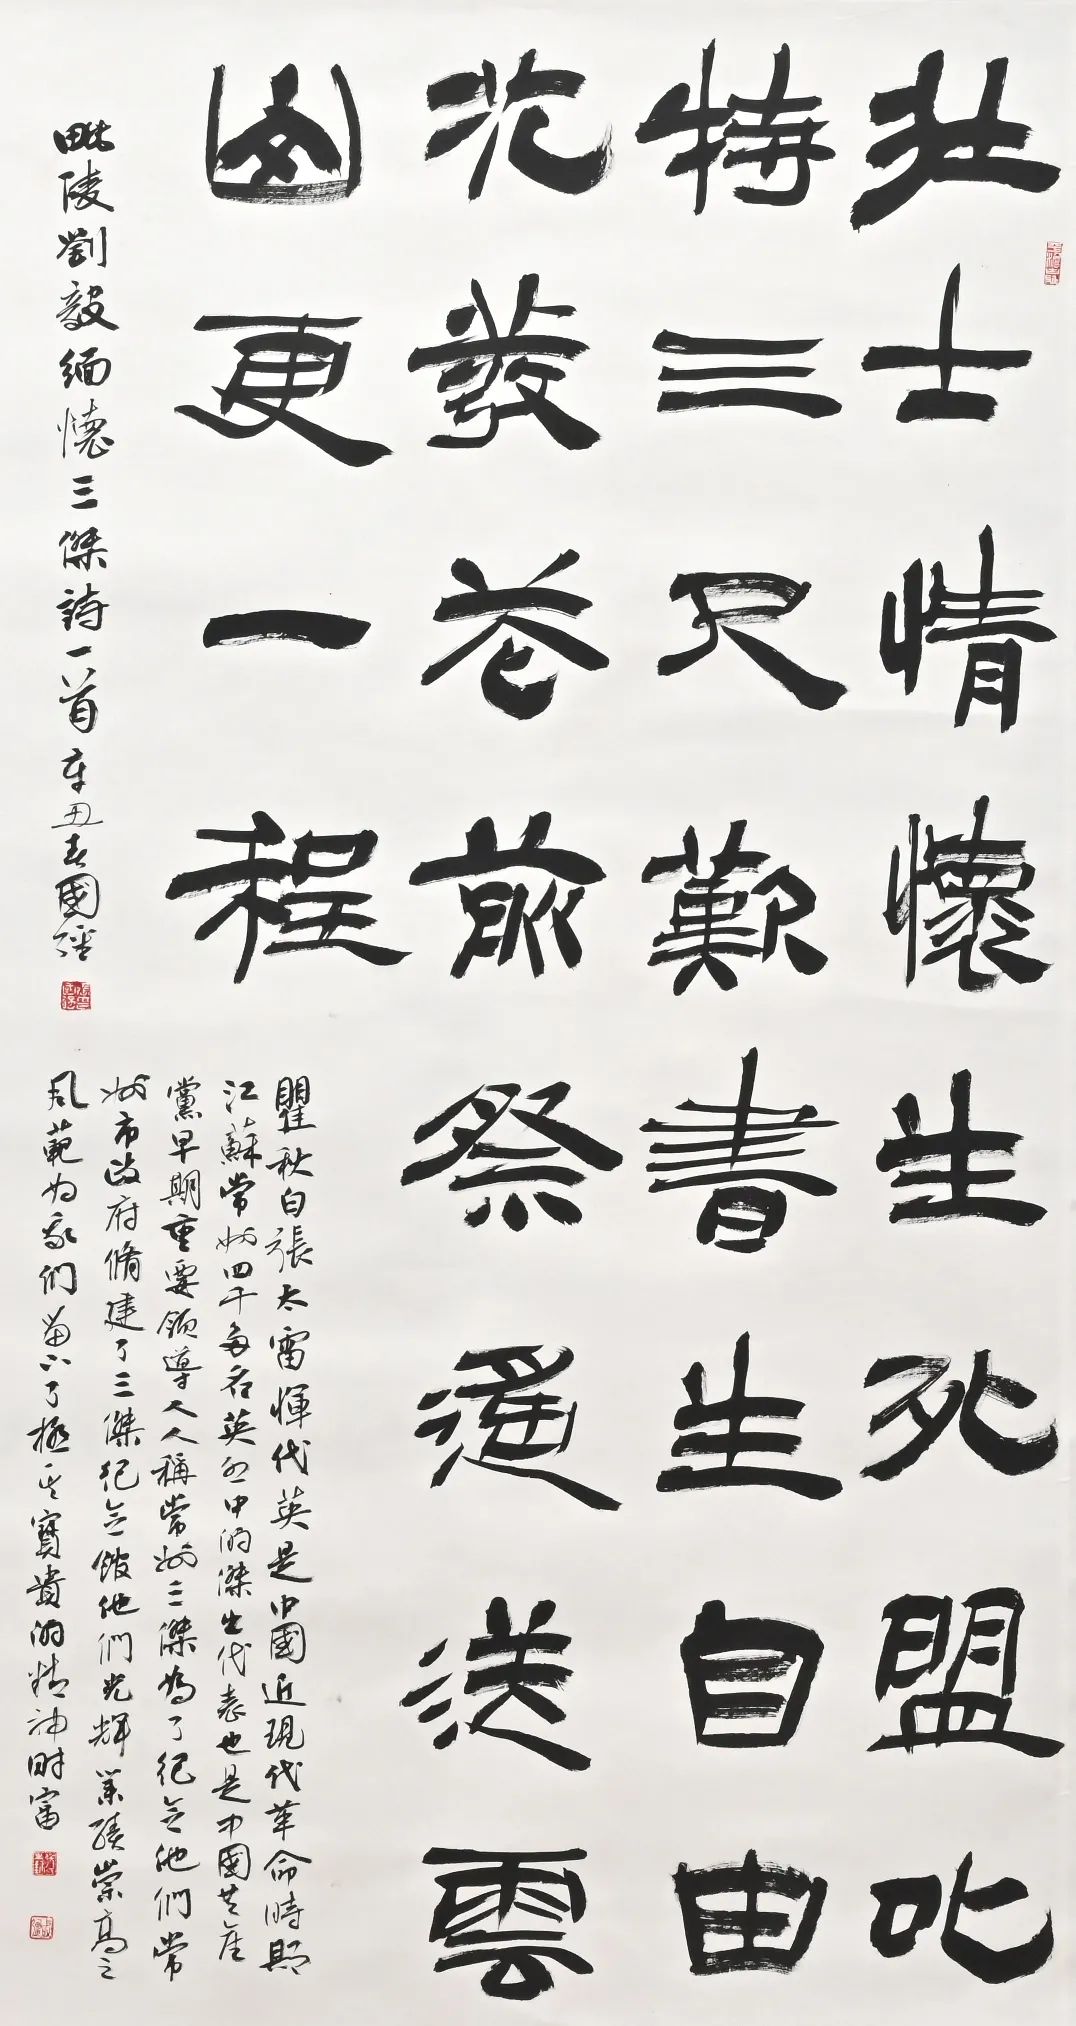 壯士情懷生死盟叱
特三尺艱書生自由
花發卷前祭遥送雲
山更一程
毗陵劉毅緬懷三傑詩一首辛丑春國
瞿秋白張太雷惲代英是中國近現代革命時期
江蘇常州四千多名英烈中的傑出代表也是中國共產
黨早期重要領導人人稱常州三傑為了紀念他們常
州市政府脩建了三傑紀念館他們光輝業績崇高之
風範为我们留下了極其寶貴的精神財富